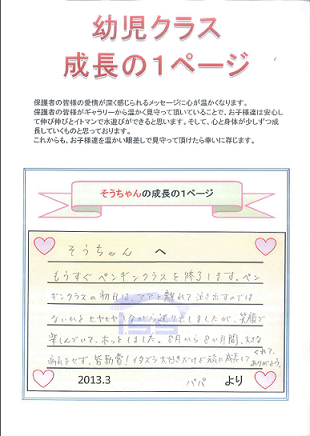 幼児クラス
成長の1ページ
保護者の皆様の愛情が深く感じられるメッセージに心が温かくなります。
保護者の皆様がギャラリーから温かく見守って頂いていることで、お子様達は安心し
て伸び伸びとイトマンで水遊びができると思います。そして、心と身体が少しずつ成
長していくものと思っております。
これからも、お子様達を温かい眼差しで見守って頂けたら幸いに存じます。
そうちゃんの成長の1ページ
そうちゃん へ
もうすぐ ペンギンクラス を 終了します。ペン
ギンクラスの 初日は、ママと 離れて 泣き出すのでは
ないかと ヒヤヒヤ しながら 送り出しましたが、笑顔で
楽しんでいて、ホッとしました。8月から 8か月間、大きな
病気もせず、皆勤賞！イタズラ大好きだけど 元気に成長して
くれて、
ありがとう。
ISS
2013.3 パパ より